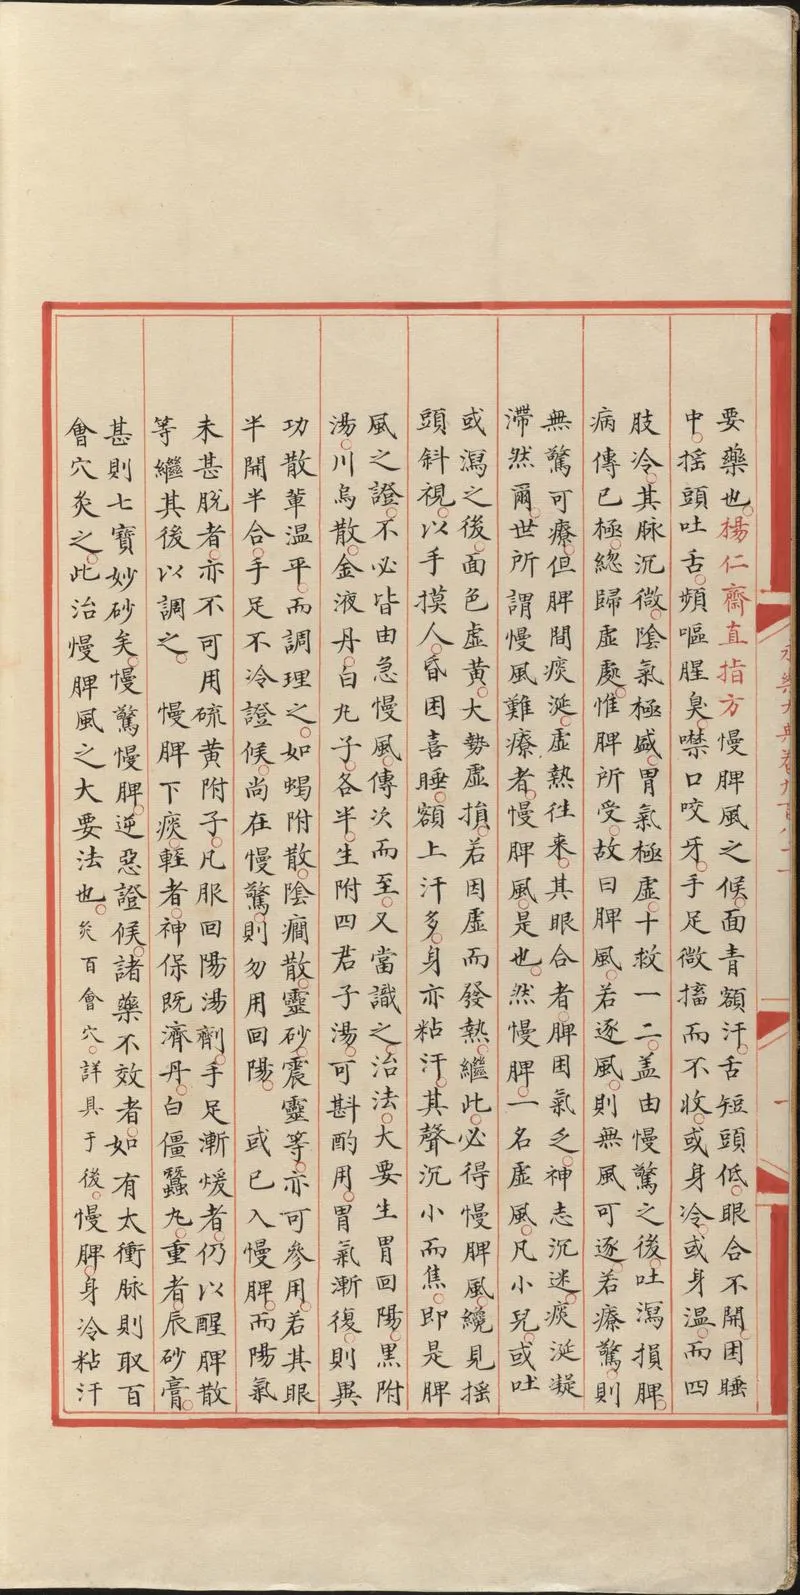 永樂大典卷九百八十一
要藥也。楊仁齋直指方慢脾風之候。面青額汗。舌短頭低。眼合不開。困睡
中。搖頭吐舌。頻嘔腥臭。噤口咬牙。手足微搐而不收。或身冷。或身温。而四
肢冷。其脉沉微。陰氣極盛。胃氣極虛。十救一二。盖由慢驚之後。吐瀉損脾。
病傳已極。緫歸虛處。惟脾所受。故曰脾風。若逐風。則無風可逐。若療驚。則
無驚可療。但脾間痰涎。虛熱往来。其眼合者。脾困氣乏。神志沉迷。痰涎凝
滯然爾。世所謂慢風難療者。慢脾風。是也。然慢脾。一名虛風。凡小兒。或吐
或瀉之後。面色虛黄。大勢虛損。若因虛而發熱。繼此。必得慢脾風。纔見搖
頭斜視。以手摸人。昏困喜睡。額上汗多。身亦粘汗。其聲沉小而焦。即是脾
風之證。不必皆由急慢風。傳次而至。又當識之治法。大要生胃回陽。黒附
湯。川烏散。金液丹。白丸子。各半。生附四君子湯。可斟酌用。胃氣漸復。則異
功散軰温平。而調理之。如蝎附散。陰癎散。靈砂。震靈等。亦可參用。若其眼
半開半合。手足不冷證候。尚在慢驚。則勿用回陽。 或已入慢脾。而陽氣
未甚脱者。亦不可用硫黄附子。凡服回陽湯劑。手足漸煖者。仍以醒脾散
等繼其後以調之。 慢脾下痰。輕者。神保既濟丹。白僵蠶丸。重者。辰砂膏。
甚則七寶妙砂矣。慢驚慢脾。逆惡證候。諸藥不效者。如有太衝脉則取百
會穴灸之。此治慢脾風之大要法也。灸百會穴。詳具于後。慢脾。身冷粘汗